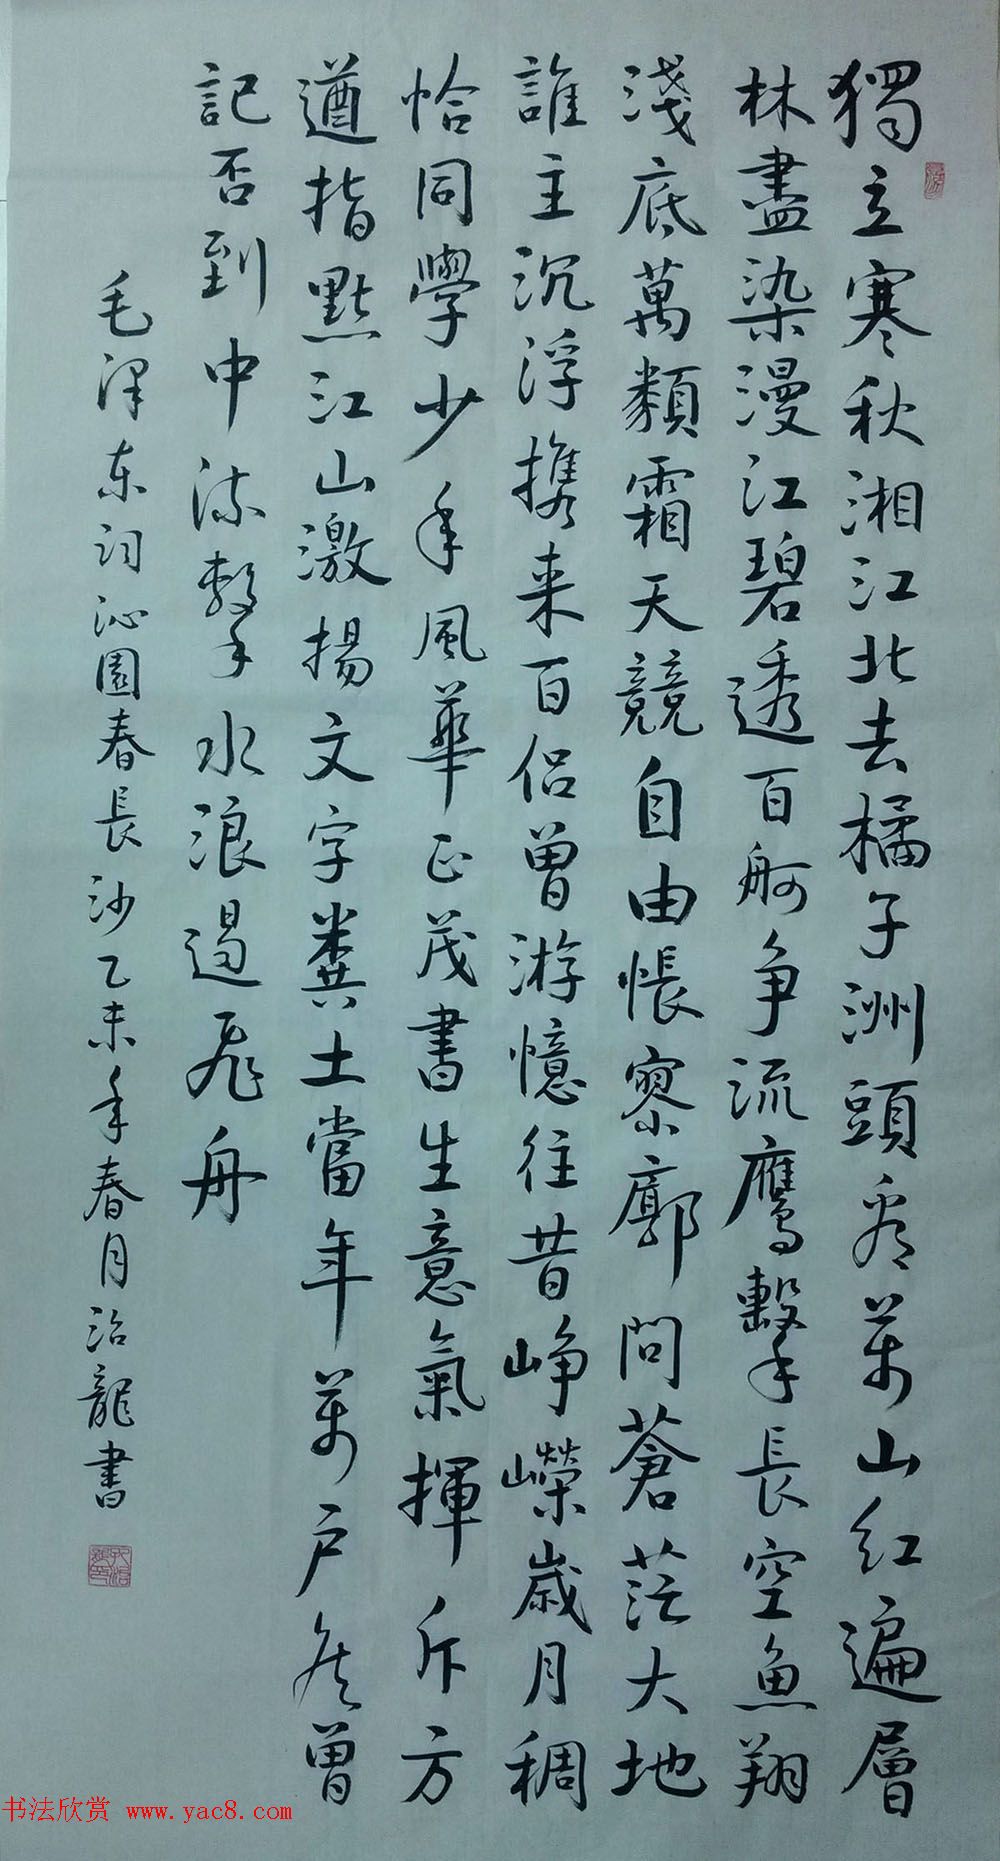 獨立寒秋湘江北去橘子洲頭看萬山紅遍層
林盡染漫江碧透百舸争流鷹擊長空魚翔
淺底萬類霜天競自由悵寥廓問蒼茫大地
誰主沉浮携来百侣曾游憶往昔峥嶸歲月稠
恰同學少年風華正茂書生意氣揮斥方
遒指點江山激揚文字糞土當年萬户矦曾
記否到中流擊水浪遏飛舟
毛澤东詞沁園春長沙乙未年春月治龍書
书法欣赏 www.yac8.com